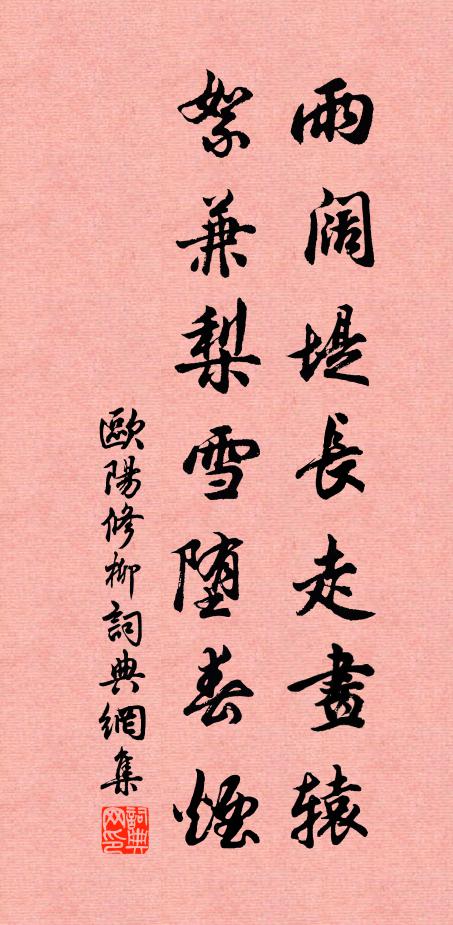 雨阔堤長走畫辕
絮兼梨雪堕春煙
歐陽修柳詞典網集
詞典网印